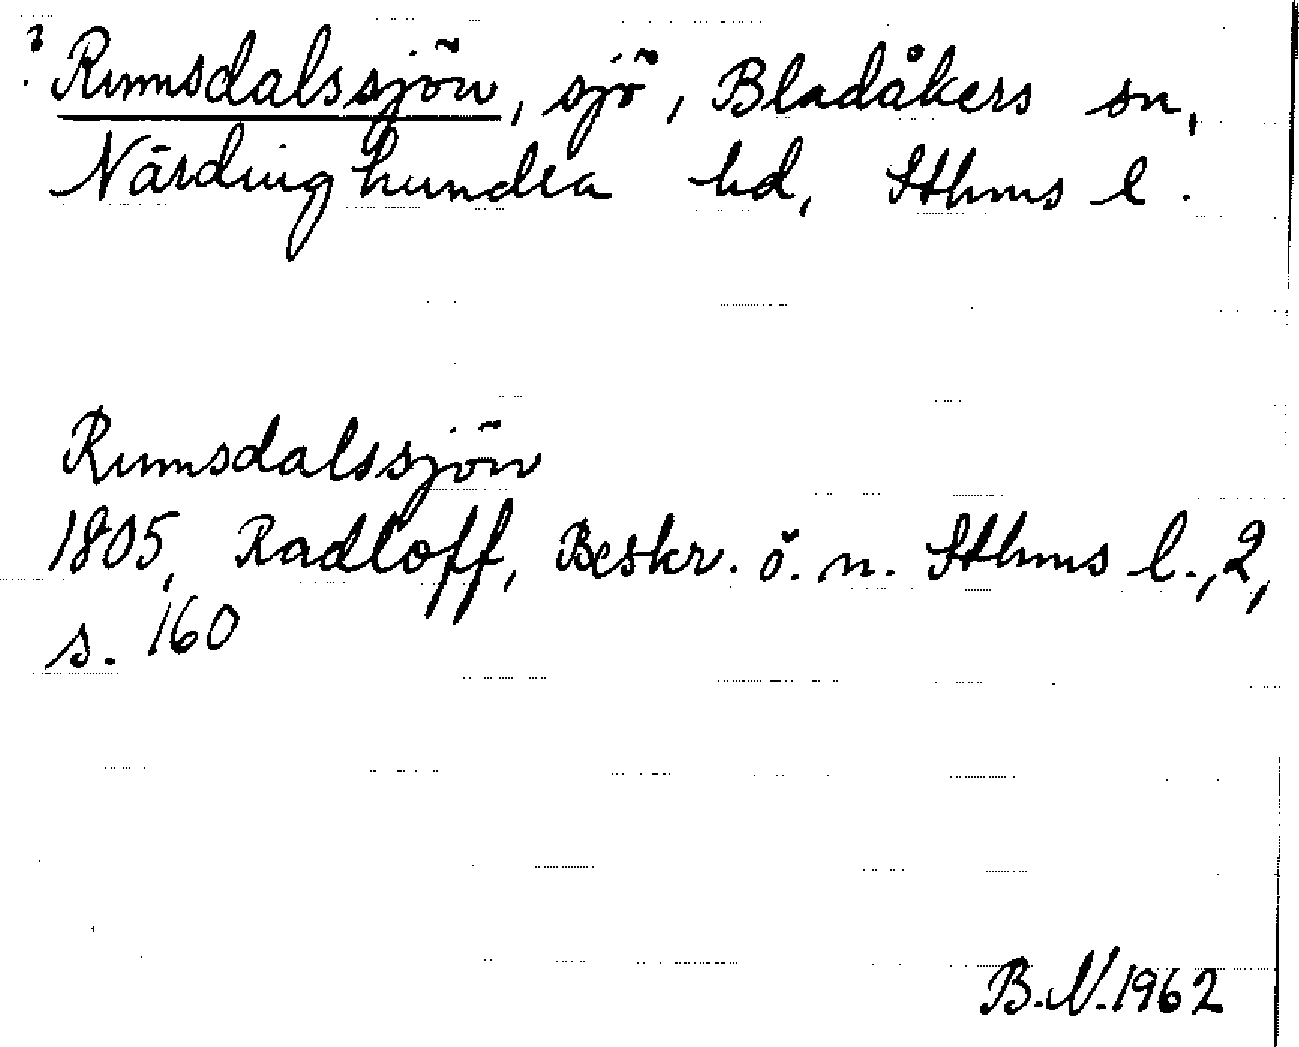 ? Rumsdalssjön, sjö, Bladåkers sn,
Närdinghundra hd, Sthms l.
Rumsdalssjön
1805, Radloff, Beskr. ö. n. Sthms l., 2,
s. 160
B.N. 1962